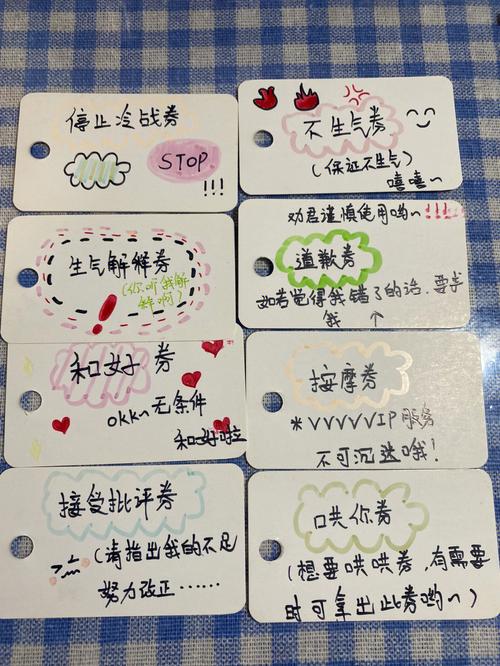 停止冷战券
STOP
!!!
不生气券
(保证不生气)
嘻嘻~
生气解释券
(你听我解
释啊)
劝君谨慎使用哟~!!!
道歉券
如若觉得我错了的话,要求
我 ↑
和好 券
okk~无条件
和好啦
按摩券
*VVVVVIP服务
不可沉迷哦!
接受批评券
(请指出我的不足
努力改正……
哄你券
(想要哄哄券,有需要
时可拿出此券哟~)